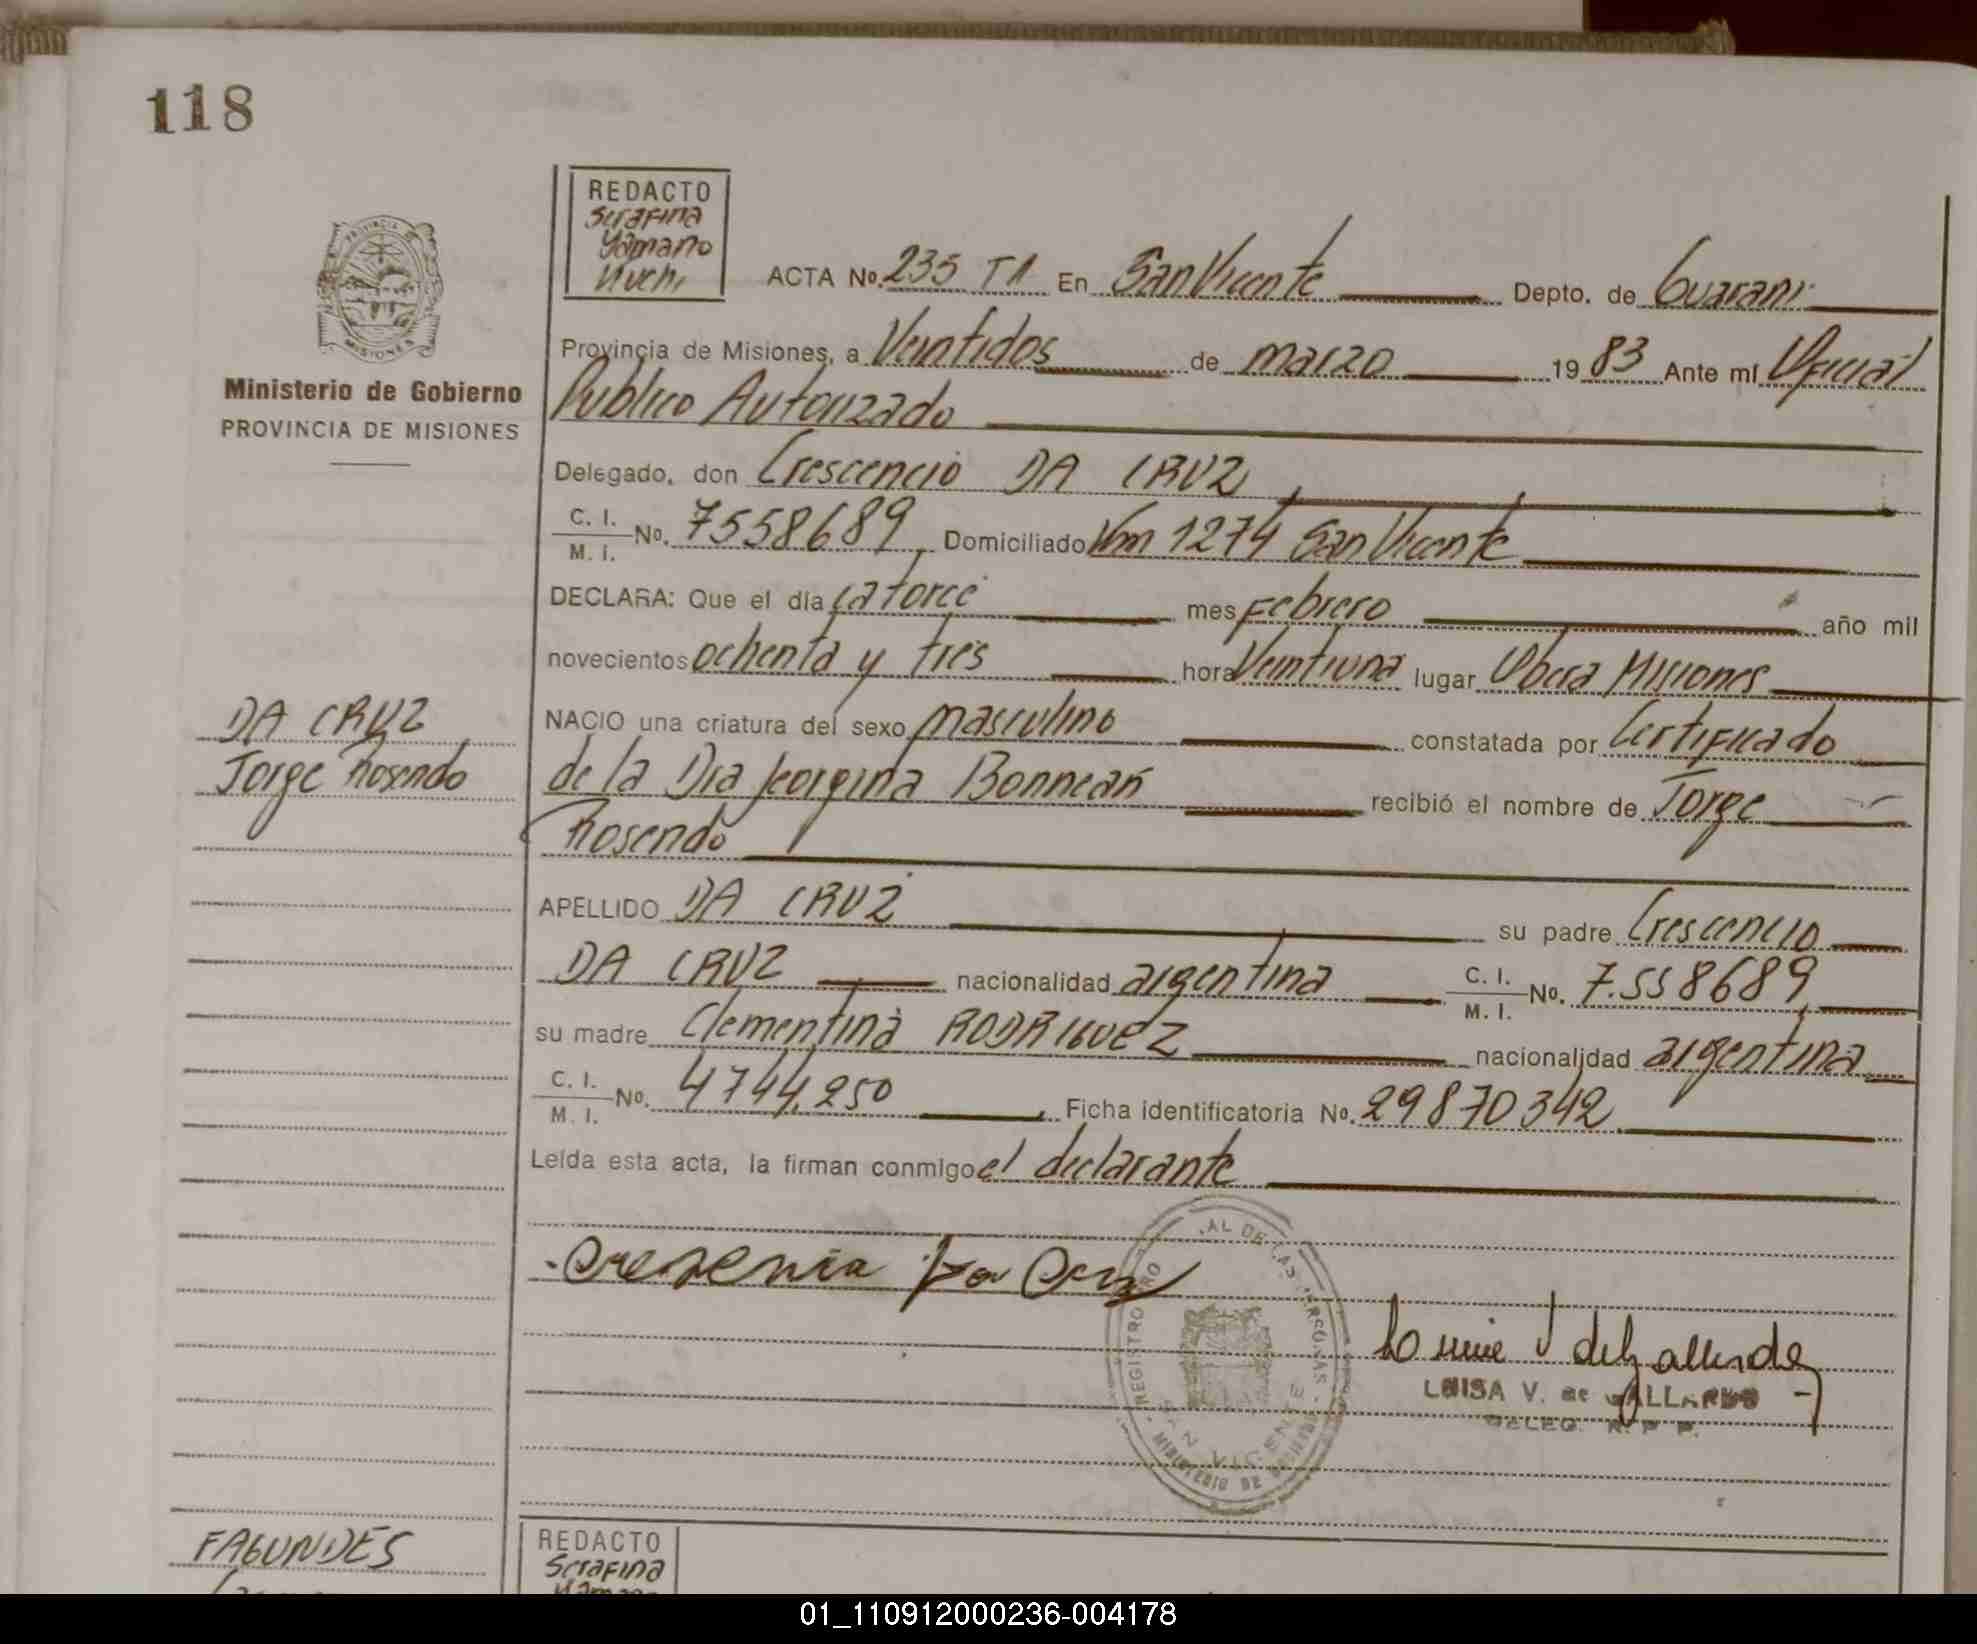 118
REDACTO
Serafina
Yamano
PROVINCIA DE
MISIONES
Ministerio de Gobierno
PROVINCIA DE MISIONES
ACTA No. 235 T1 En San Vicente Depto. de Guarani
Provincia de Misiones, a Veintidos de marzo 1983 Ante mí Oficial
Publico Autorizado
Delegado, don Crescencio DA CRUZ,
C. I.
M. I. No. 7558689, Domiciliado Km 1274 San Vicente
DECLARA: Que el día catorce mes Febrero año mil
novecientos ochenta y tres hora Veintiuna lugar Obera Misiones
DA CRUZ
Jorge Rosendo
NACIO una criatura del sexo masculino constatada por Certificado
de la Dra Jeorgina Bonnean recibió el nombre de Jorge
Rosendo
APELLIDO DA CRUZ su padre Crescencio
DA CRUZ nacionalidad argentina C. I.
M. I. No. 7.558689,
su madre Clementina RODRIGUEZ nacionalidad argentina
C. I.
M. I. No. 4744.250 Ficha identificatoria No. 29870342
Leída esta acta, la firman conmigo el declarante
LUISA V. de GALLARDO
DELEG. R. P. P.
SAN VICENTE
FAGUNDES
REDACTO
Serafina
01_110912000236-004178